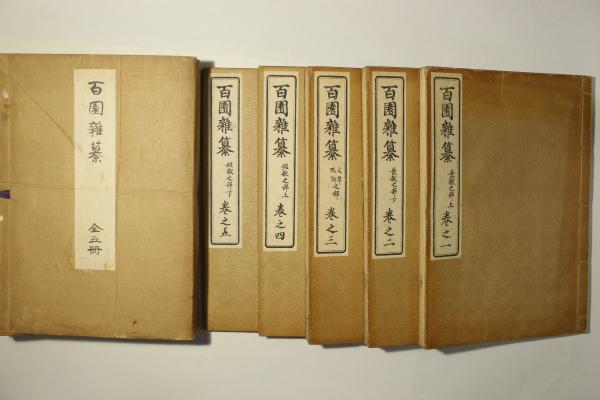 百園雜纂
長歌之部 上
卷之一
百園雜纂
長歌之部 下
卷之二
百園雜纂
文章之部
祝詞
卷之三
百園雜纂
短歌之部 上
卷之四
百園雜纂
短歌之部 下
卷之五
百園雜纂
全五冊